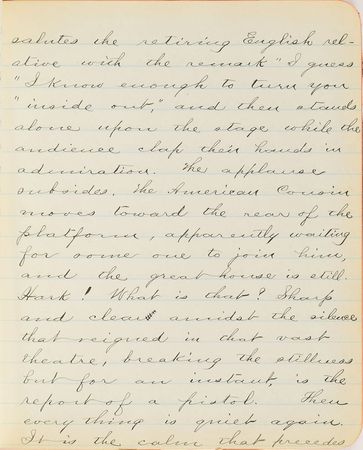 salutes the retiring English rel-
ative with the remark "I guess
"I know enough to turn you
"inside out," and then stands
alone upon the stage while the
audience clap their hands in
admiration. The applause
subsides. The American Cousin
moves toward the rear of the
platform, apparently waiting
for some one to join him,
and the great house is still.
Hark! What is that? Sharp
and clear amidst the silence
that reigned in that vast
theatre, breaking the stillness
but for an instant, is the
report of a pistol. Then
every thing is quiet again.
It is the calm that precedes